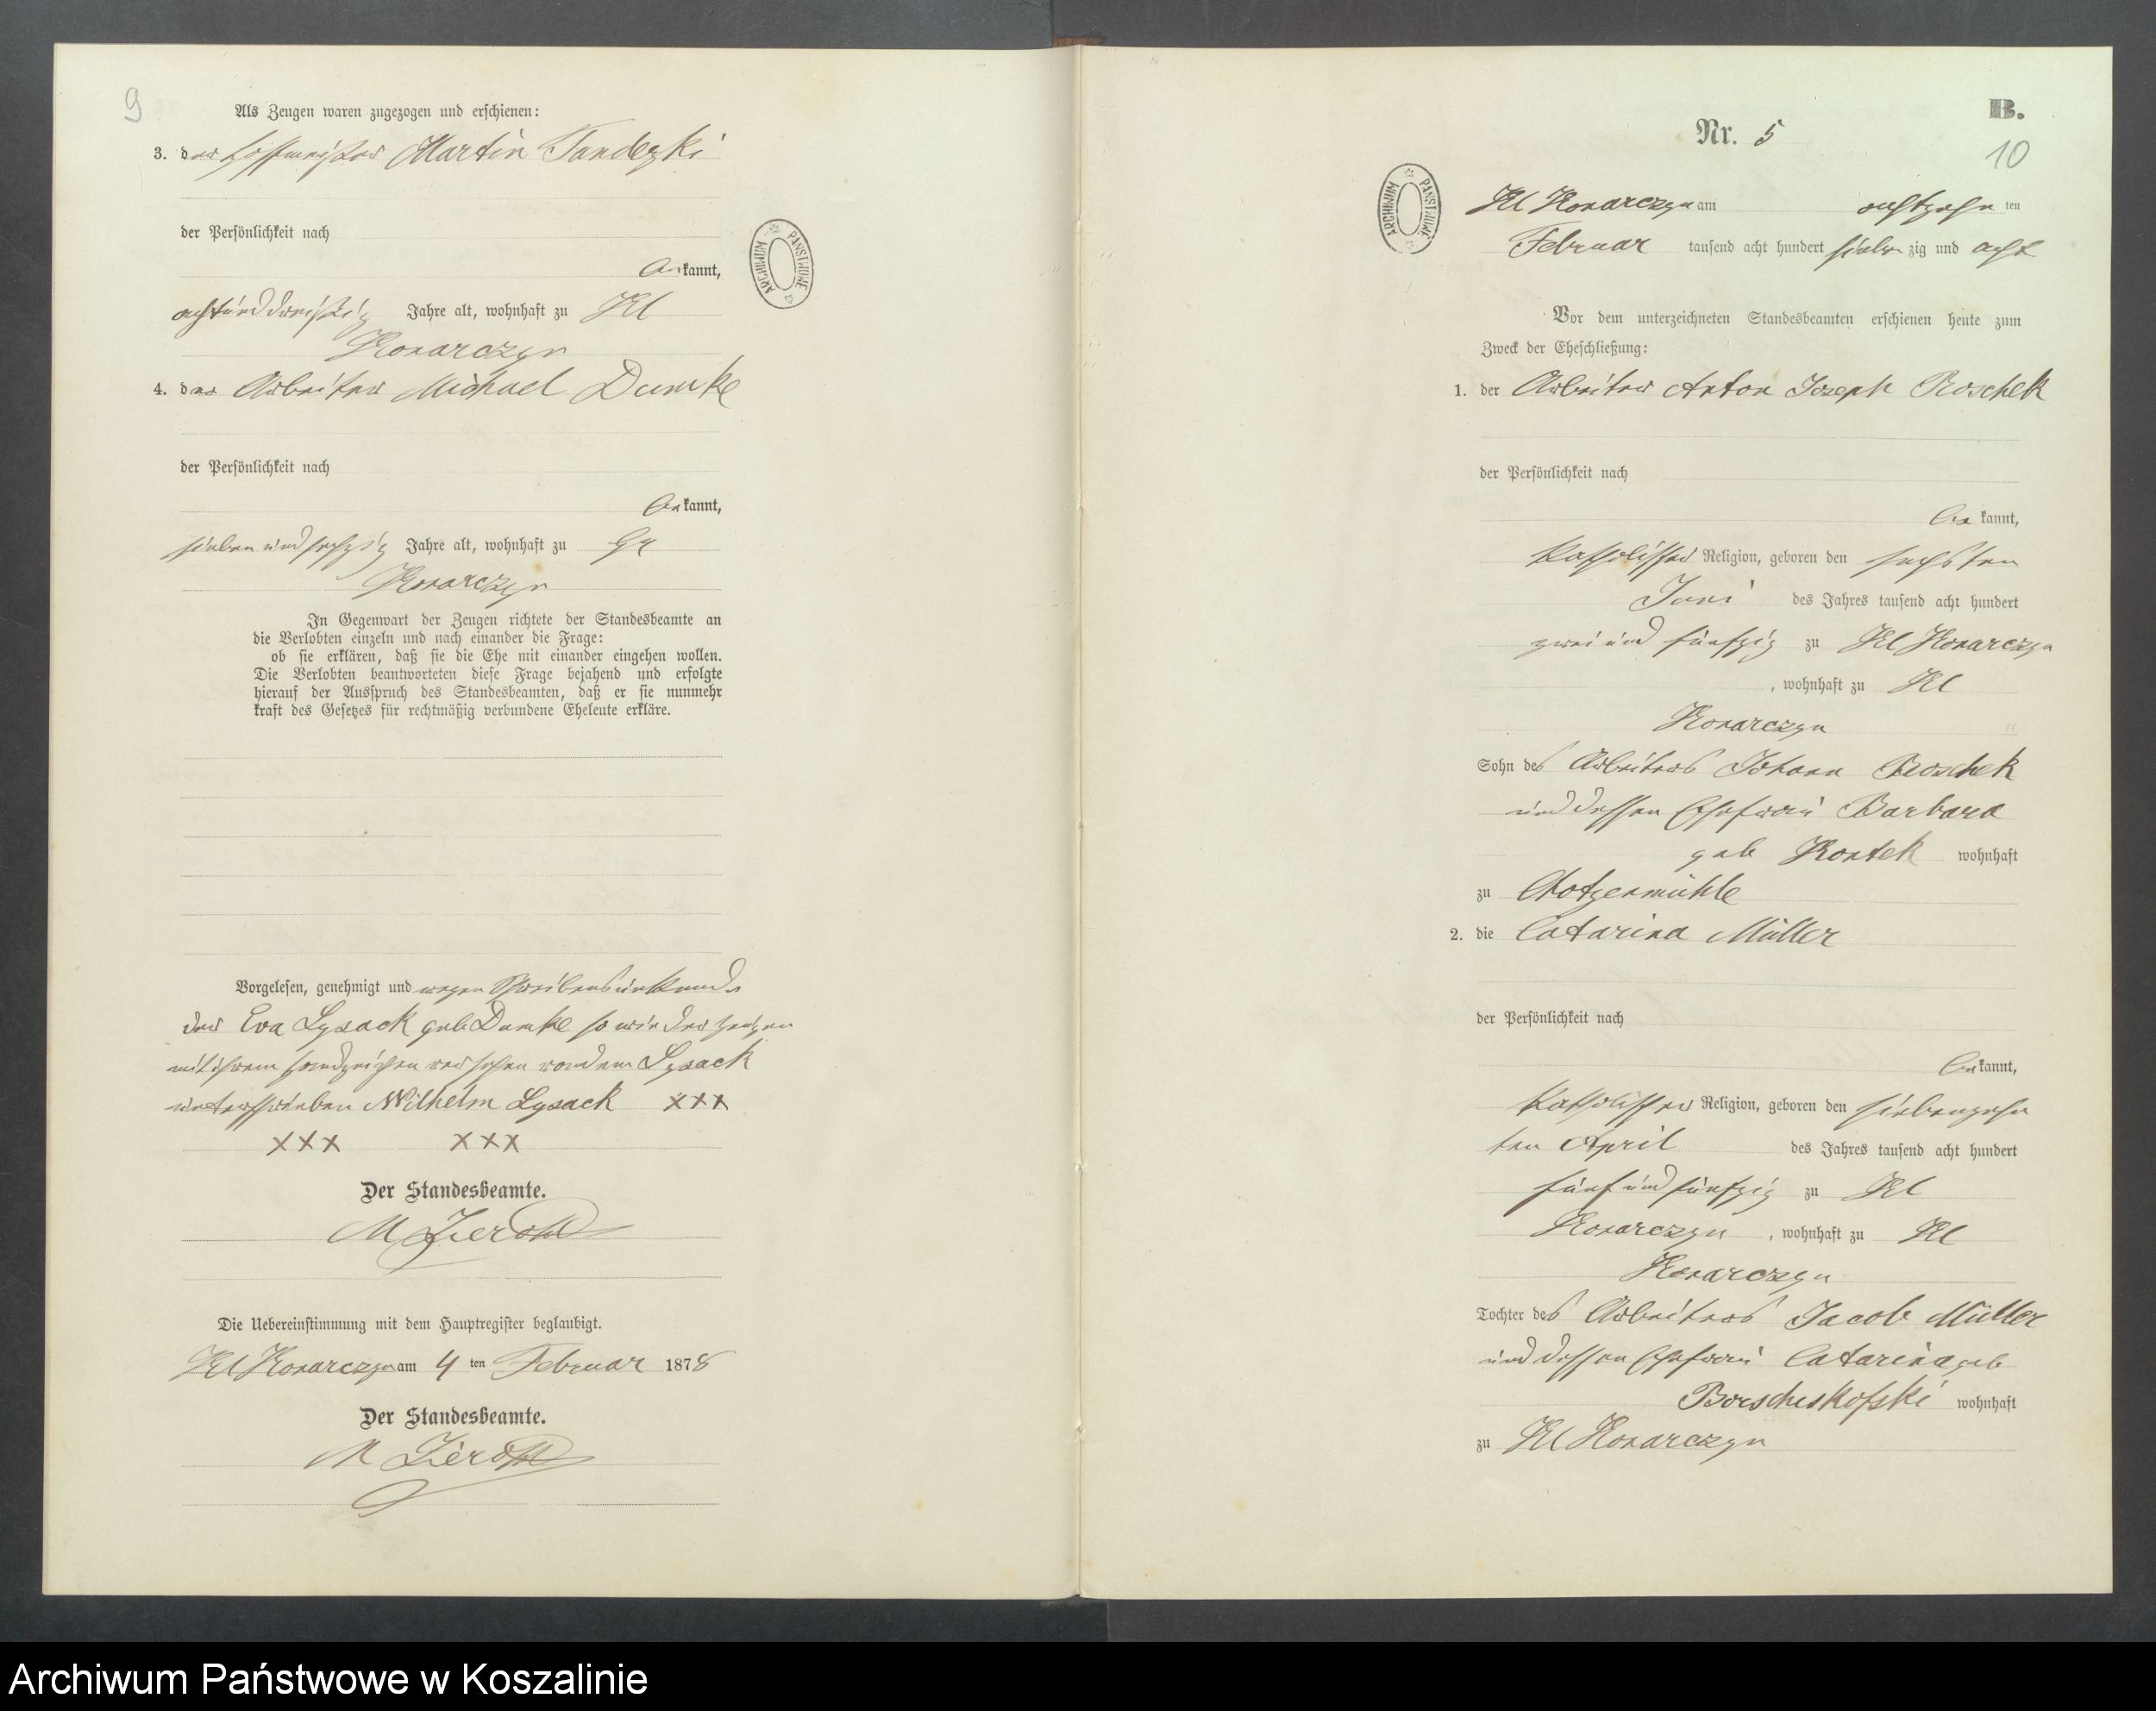 9
Als Zeugen waren zugezogen und erschienen:
3. der Hoffmeister Martin Tandezki
der Persönlichkeit nach
bekannt,
achtunddreißig Jahre alt, wohnhaft zu Kl
Konarczyn
4. der Arbeiter Michael Dumke
der Persönlichkeit nach
bekannt,
sieben und sechzig Jahre alt, wohnhaft zu Gr
Konarczyn
In Gegenwart der Zeugen richtete der Standesbeamte an
die Verlobten einzeln und nach einander die Frage:
ob sie erklären, daß sie die Ehe mit einander eingehen wollen.
Die Verlobten beantworteten diese Frage bejahend und erfolgte
hierauf der Ausspruch des Standesbeamten, daß er sie nunmehr
kraft des Gesetzes für rechtmäßig verbundene Eheleute erkläre.
Vorgelesen, genehmigt und wegen Schreibensunkunde
der Eva Lysack geb Dumke so wie der Zeugen
mit ihrem Handzeichen versehen von dem Lysack
unterschrieben Wilhelm Lysack XXX
XXX XXX
Der Standesbeamte.
M
Die Uebereinstimmung mit dem Hauptregister beglaubigt.
Kl Konarczyn am 4 ten Februar 1878
Der Standesbeamte.
M
ARCHIWUM PAŃSTWOWE
B.
Nr. 5
10
ARCHIWUM PAŃSTWOWE
Kl Konarczyn am achtzehn ten
Februar tausend acht hundert siebenzig und acht
Vor dem unterzeichneten Standesbeamten erschienen heute zum
Zweck der Eheschließung:
1. der Arbeiter Anton Joseph Roschek
der Persönlichkeit nach
bekannt,
katholischer Religion, geboren den sechsten
Juni des Jahres tausend acht hundert
zwei und fünfzig zu Kl Konarczyn
, wohnhaft zu Kl
Konarczyn
Sohn des Arbeiters Johann Roschek
und dessen Ehefrau Barbara
geb Kontek wohnhaft
zu Chotzenmühle
2. die Catarina Müller
der Persönlichkeit nach
bekannt,
katholischer Religion, geboren den siebenzehn
ten April des Jahres tausend acht hundert
fünf und fünfzig zu Kl
Konarczyn , wohnhaft zu Kl
Konarczyn
Tochter des Arbeiters Jacob Müller
und dessen Ehefrau Catarina geb
wohnhaft
zu Kl Konarczyn
Archiwum Państwowe w Koszalinie